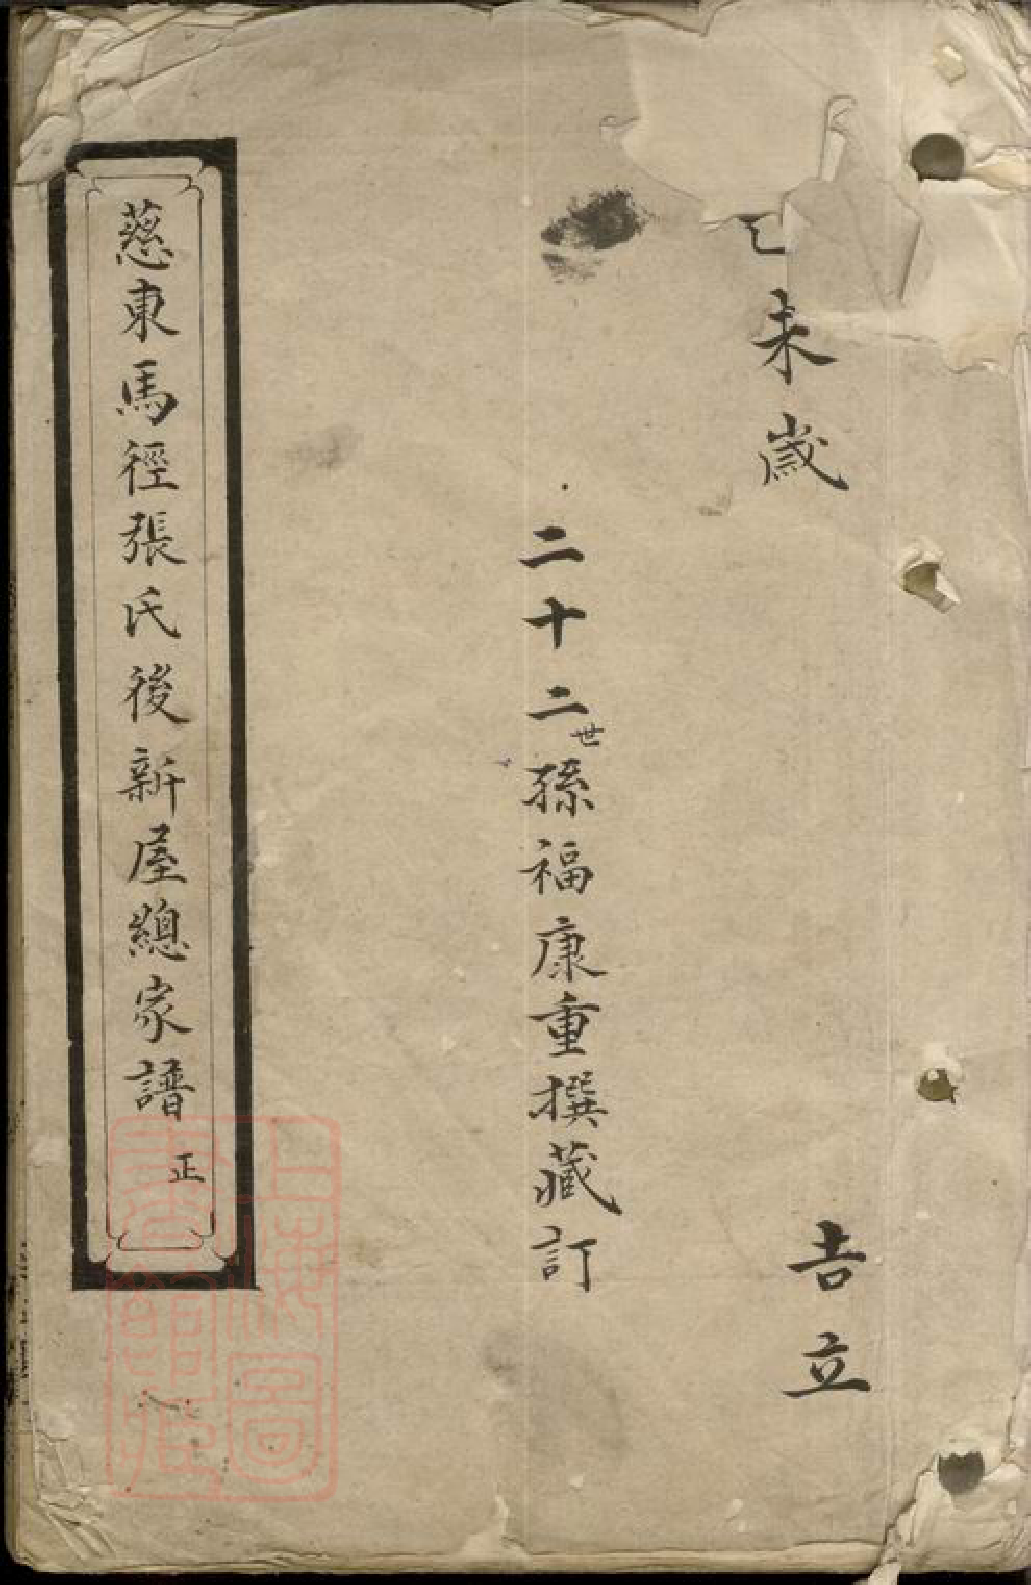 未歲 吉立
二十二世孫福康重撰藏訂
慈東馬徑張氏後新屋總家譜 正
上海圖書館藏